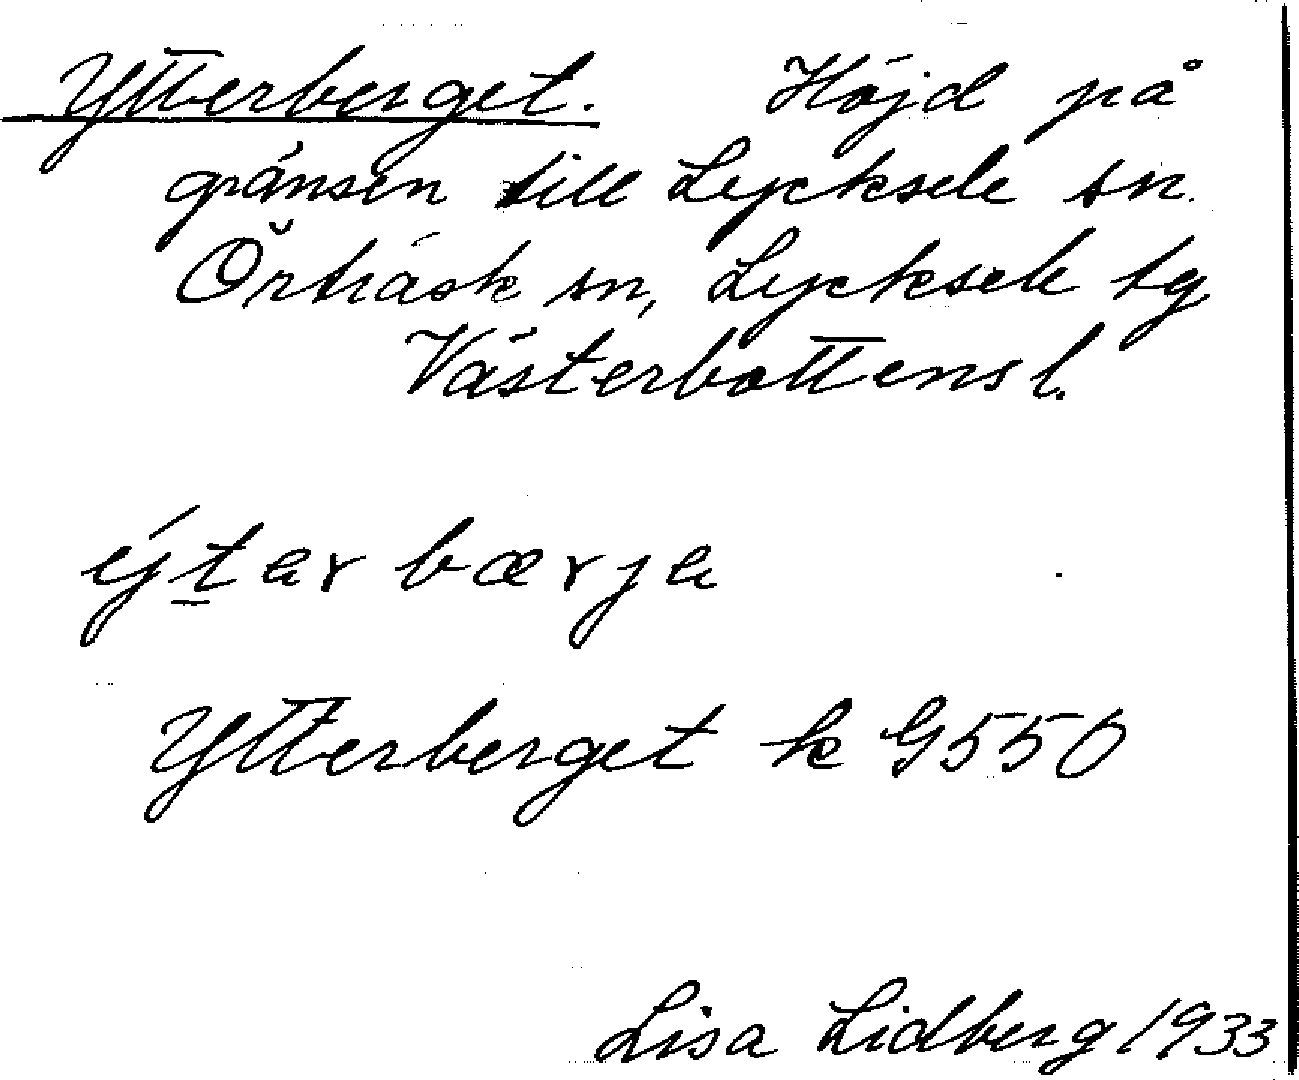 Ytterberget. Höjd på
gränsen till Lycksele sn.
Örträsk sn, Lycksele tg
Västerbottens l.
ýt̲ər bærjə
Ytterberget k G550
Lisa Lidberg 1933